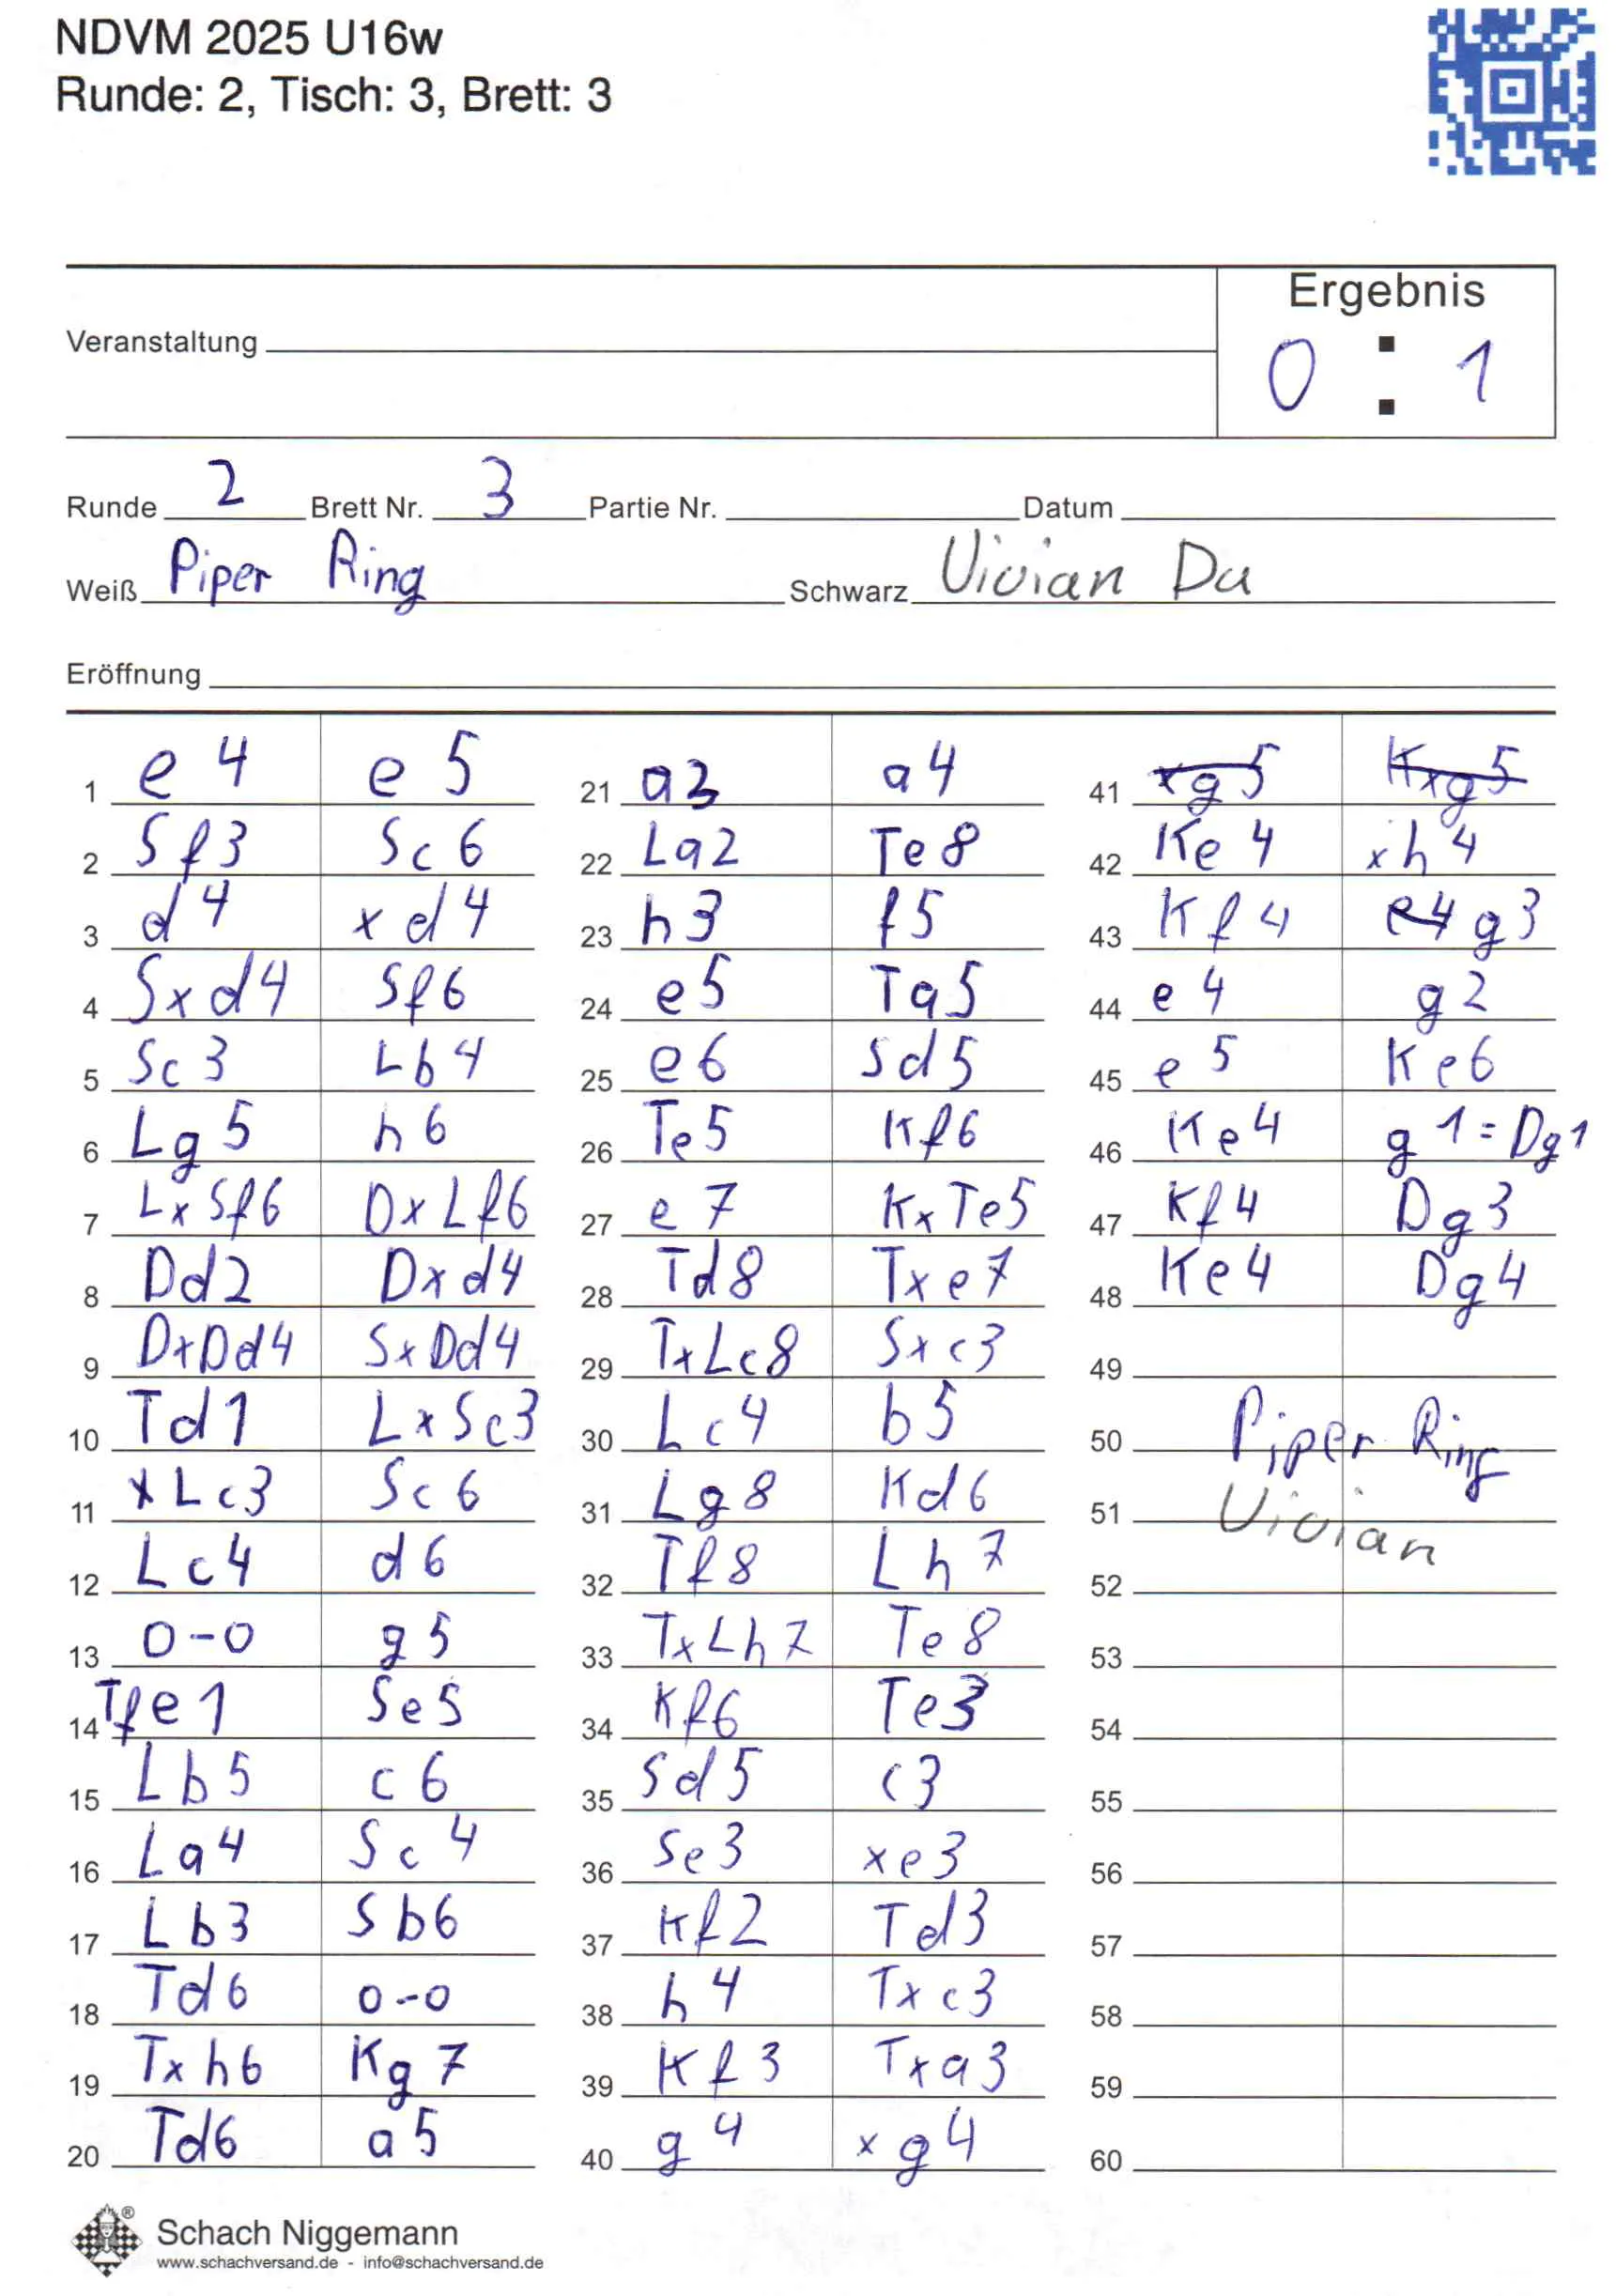 NDVM 2025 U16w
Runde: 2, Tisch: 3, Brett: 3
Ergebnis
Veranstaltung
0 : 1
Runde 2 Brett Nr. 3 Partie Nr. Datum
Weiß Piper Ring Schwarz Vivian Du
Eröffnung
1 e4 e5
2 Sf3 Sc6
3 d4 xd4
4 Sxd4 Sf6
5 Sc3 Lb4
6 Lg5 h6
7 LxSf6 DxLf6
8 Dd2 Dxd4
9 DxDd4 SxDd4
10 Td1 LxSc3
11 xLc3 Sc6
12 Lc4 d6
13 0-0 g5
14 Tfe1 Se5
15 Lb5 c6
16 La4 Sc4
17 Lb3 Sb6
18 Td6 0-0
19 Txh6 Kg7
20 Td6 a5
21 a3 a4
22 La2 Te8
23 h3 f5
24 e5 Ta5
25 e6 Sd5
26 Te5 Kf6
27 e7 KxTe5
28 Td8 Txe7
29 TxLc8 Sxc3
30 Lc4 b5
31 Lg8 Kd6
32 Tf8 Lh7
33 TxLh7 Te8
34 Kf6 Te3
35 Sd5 c3
36 Se3 xe3
37 Kf2 Td3
38 h4 Txc3
39 Kf3 Txa3
40 g4 xg4
41 xg5 Kxg5
42 Ke4 xh4
43 Kf4 e4 g3
44 e4 g2
45 e5 Ke6
46 Ke4 g1=Dg1
47 Kf4 Dg3
48 Ke4 Dg4
49
50 Piper Ring
51 Vivian
52
53
54
55
56
57
58
59
60
Schach Niggemann
www.schachversand.de - info@schachversand.de